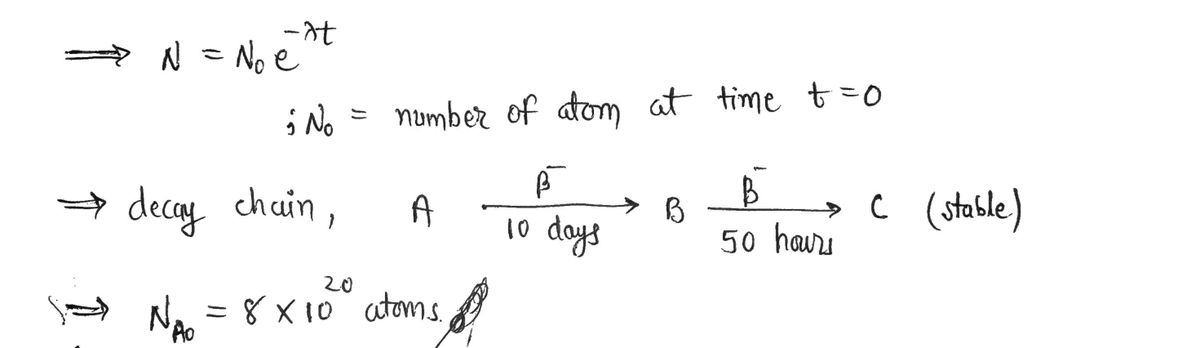 ⟹ N = N₀ e^{-λt}
; N₀ = number of atom at time t = 0
⇒ decay chain, A —β⁻/10 days→ B —β⁻/50 hours→ C (stable)
⇒ N_{A0} = 8 × 10^{20} atoms.